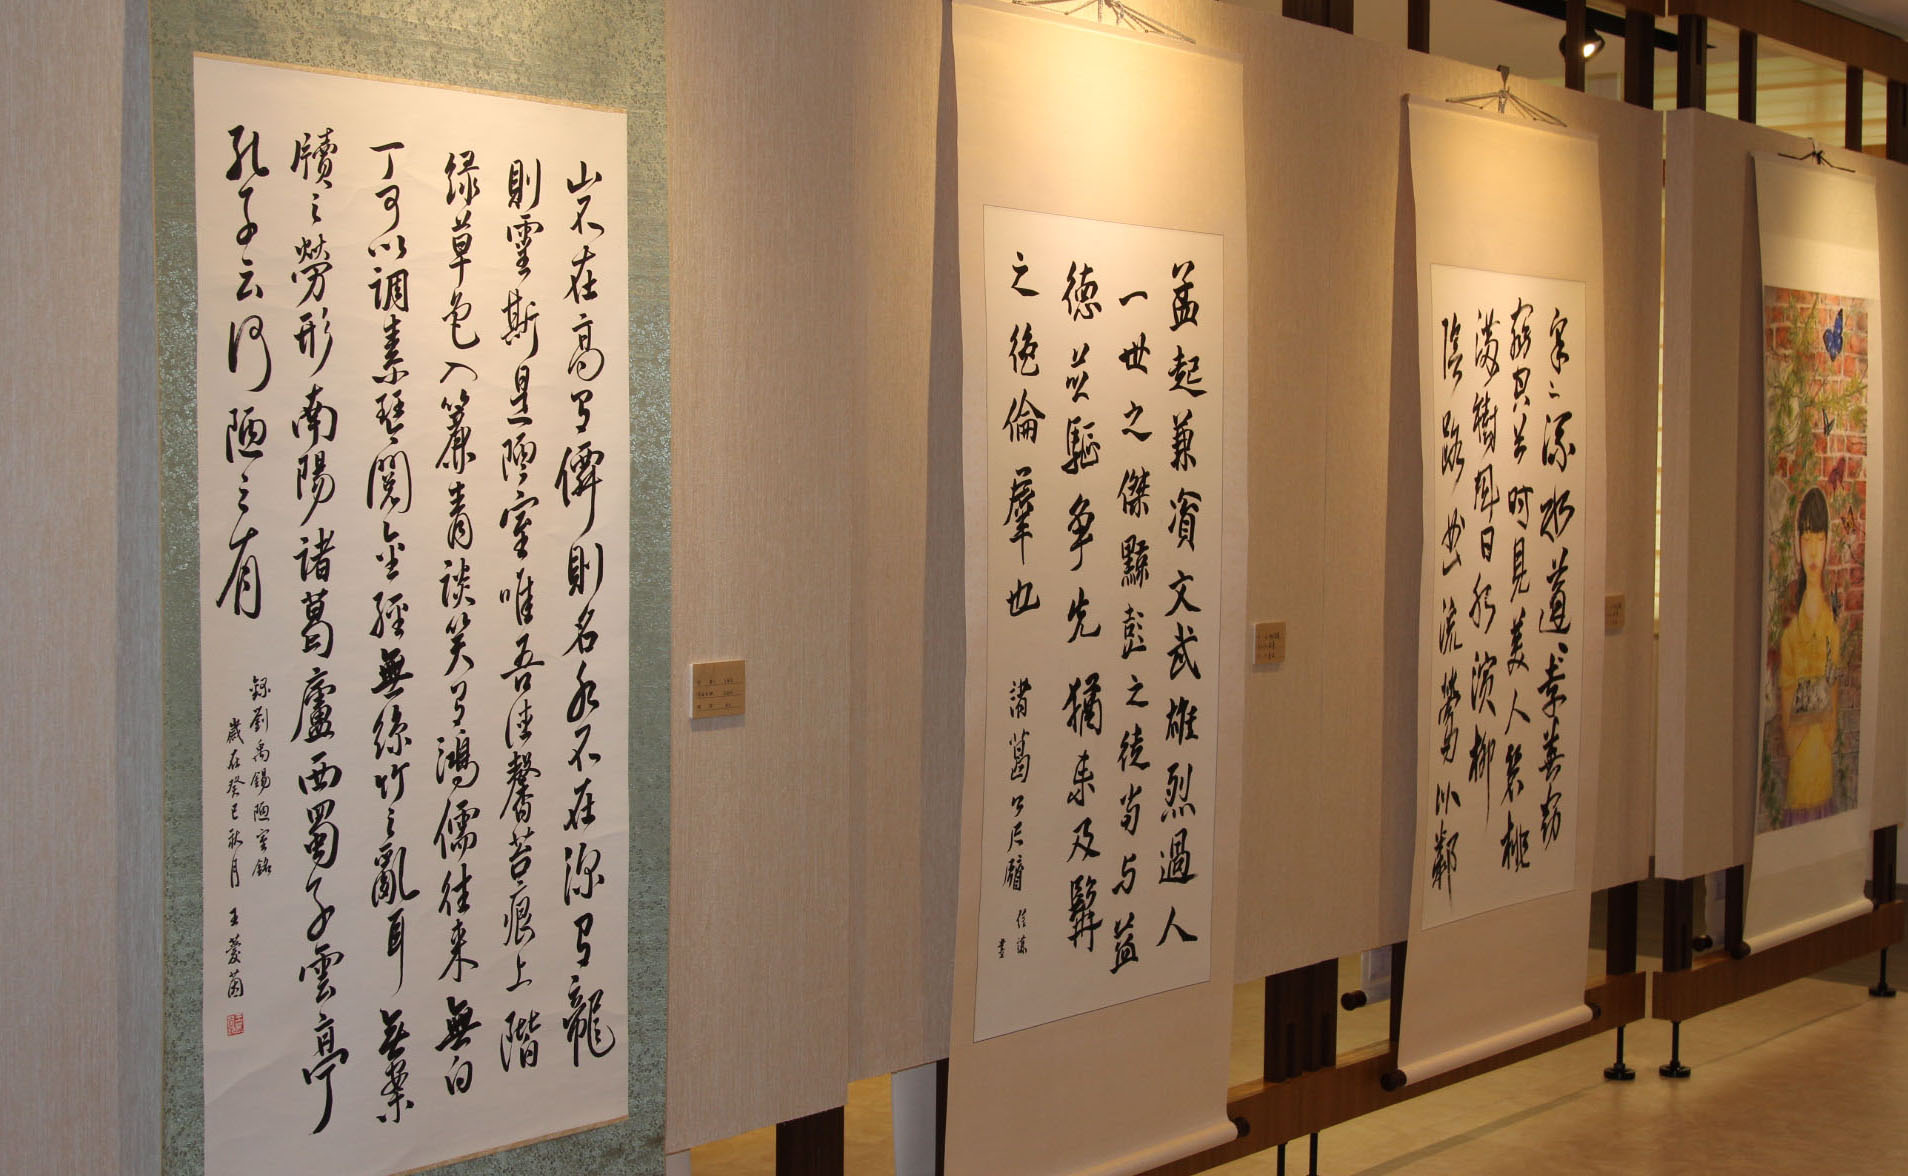 山不在高有僊則名水不在深有龍
則靈斯是陋室唯吾德馨苔痕上階
綠草色入簾青談笑有鴻儒往來無白
丁可以調素琴閱金經無絲竹之亂耳無案
牘之勞形南陽諸葛廬西蜀子雲亭
孔子云何陋之有
錄劉禹錫陋室銘
歲在癸巳秋月 王
孟起兼資文武雄烈過人
一世之傑黥彭之徒當与益
德並驅爭先猶未及髯
之絕倫羣也 諸葛公尺牘
書
采〻流水蓬〻遠春窈
窕深谷時見美人碧桃
滿樹風日水濱柳
陰路曲流鶯比鄰